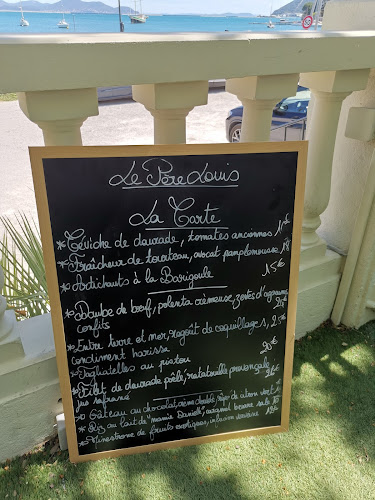 Le Père Louis
La Carte
*Ceviche de daurade, tomates anciennes
*Fraîcheur de tourteau, avocat pamplemousse
*Artichauts à la Barigoule 15€
*Daube de bœuf, polenta crémeuse, zestes d'agrumes
confits
*Entre terre et mer, ragoût de coquillages,
condiment harissa
*Tagliatelles au pistou 20€
*Filet de daurade poêlé, ratatouille provençale
jus safrané
*Gâteau au chocolat,
*Riz au lait de "mamie Danielle", caramel beurre salé
*Minestrone de fruits exotiques, infusion verveine